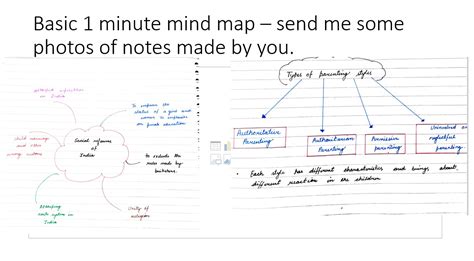 Basic 1 minute mind map – send me some
photos of notes made by you.
in India
To improve the
status of a girl and
women to emphasize
on female education
child marriage
and other
customs
Social reforms
of
India
To
the
made by
Abolishing
caste system in
India
Unity of
religion
Types of parenting styles
Authoritative
Parenting
Authoritarian
Parenting
Permissive
parenting
Uninvolved or
neglectful
parenting
• Each style has different characteristics and brings about
different reaction in the children